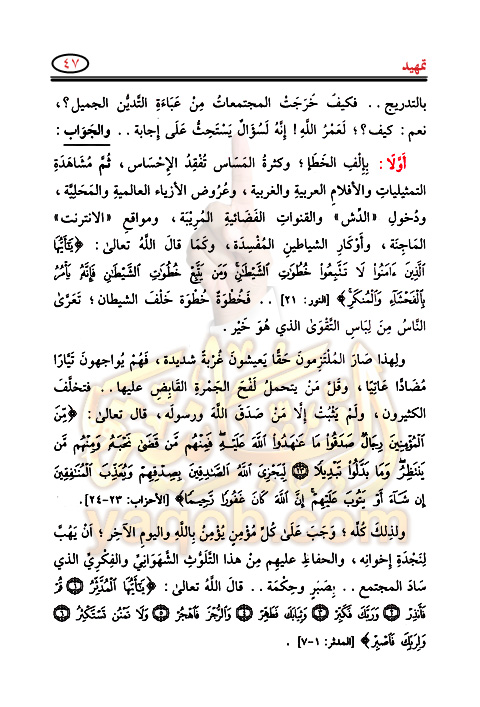 تمهيد
٤٧
بالتدريج . . فكيفَ خَرَجَتْ المجتمعاتُ مِنْ عَبَاءَةِ التديُّن الجميل ؟ ،
نعم : كيف ؟ ؛ لَعَمْرُ اللَّهِ ! إِنَّهُ لَسُؤَالٌ يَسْتَحِثُّ عَلَى إجابة . . والجَوَاب :
أوَّلًا : بِإِلْفِ الخَطَإِ ؛ وكثرةُ المَسَاس تُفْقِدُ الإِحْسَاس ، ثُمَّ مُشَاهَدَةِ
التمثيليات والأفلامِ العربيةِ والغربية ، وعُرُوض الأزياء العالميةِ والمَحَلِيَّة ،
ودُخولِ «الدِّش» والقنواتِ الفَضَائيةِ المُرِيْبَة ، ومواقعِ «الانترنت»
المَاجِنَة ، وأَوْكَارِ الشياطينِ المُفْسِدَة ، وكَمَا قالَ اللَّهُ تعالى : ﴿يَٰٓأَيُّهَا
ٱلَّذِينَ ءَامَنُوا۟ لَا تَتَّبِعُوا۟ خُطُوَٰتِ ٱلشَّيْطَٰنِ ۚ وَمَن يَتَّبِعْ خُطُوَٰتِ ٱلشَّيْطَٰنِ فَإِنَّهُۥ يَأْمُرُ
بِٱلْفَحْشَآءِ وَٱلْمُنكَرِ ۚ﴾ [النور: ٢١] . . فَخُطْوَةً خُطْوَة خَلْفَ الشيطان ؛ تَعَرَّىٰ
النَّاسُ مِنَ لِبَاسِ التَّقْوَىٰ الذي هُوَ خَيْر .
ولِهذا صَارَ المُلْتَزِمونَ حَقًّا يَعيشونَ غُربةً شديدة ، فَهُمْ يُواجهونَ تَيَّارًا
مُضَادًّا عَاتِيًا ، وقَلَّ مَنْ يتحملُ لَفْحَ الجَمْرةِ القَابِضِ عليها . . فتخلَّفَ
الكثيرون ، ولَمْ يَثْبُتْ إِلَّا مَنْ صَدَقَ اللَّهَ ورسولَه ، قال تعالى : ﴿مِّنَ
ٱلْمُؤْمِنِينَ رِجَالٌ صَدَقُوا۟ مَا عَٰهَدُوا۟ ٱللَّهَ عَلَيْهِ ۖ فَمِنْهُم مَّن قَضَىٰ نَحْبَهُۥ وَمِنْهُم مَّن
يَنتَظِرُ ۖ وَمَا بَدَّلُوا۟ تَبْدِيلًا ۝٢٣ لِّيَجْزِىَ ٱللَّهُ ٱلصَّٰدِقِينَ بِصِدْقِهِمْ وَيُعَذِّبَ ٱلْمُنَٰفِقِينَ
إِن شَآءَ أَوْ يَتُوبَ عَلَيْهِمْ ۚ إِنَّ ٱللَّهَ كَانَ غَفُورًا رَّحِيمًا﴾ [الأحزاب: ٢٣-٢٤] .
ولذلكَ كُلِّه ؛ وَجَبَ عَلَىٰ كُلِّ مُؤْمِنٍ يُؤْمِنُ بِاللَّهِ واليومِ الآخِر ؛ أَنْ يَهُبَّ
لِنَجْدَةِ إخوانِه ، والحفاظِ عليهم مِنْ هذا التَّلَوُّثِ الشَّهْوَانِيِّ والفِكْرِيِّ الذي
سَادَ المجتمع . . بِصَبرٍ وحِكْمَة . . قالَ اللَّهُ تعالى : ﴿يَٰٓأَيُّهَا ٱلْمُدَّثِّرُ ۝١ قُمْ
فَأَنذِرْ ۝٢ وَرَبَّكَ فَكَبِّرْ ۝٣ وَثِيَابَكَ فَطَهِّرْ ۝٤ وَٱلرُّجْزَ فَٱهْجُرْ ۝٥ وَلَا تَمْنُن تَسْتَكْثِرُ ۝٦
وَلِرَبِّكَ فَٱصْبِرْ﴾ [المدثر: ١-٧] .
yaqob.com